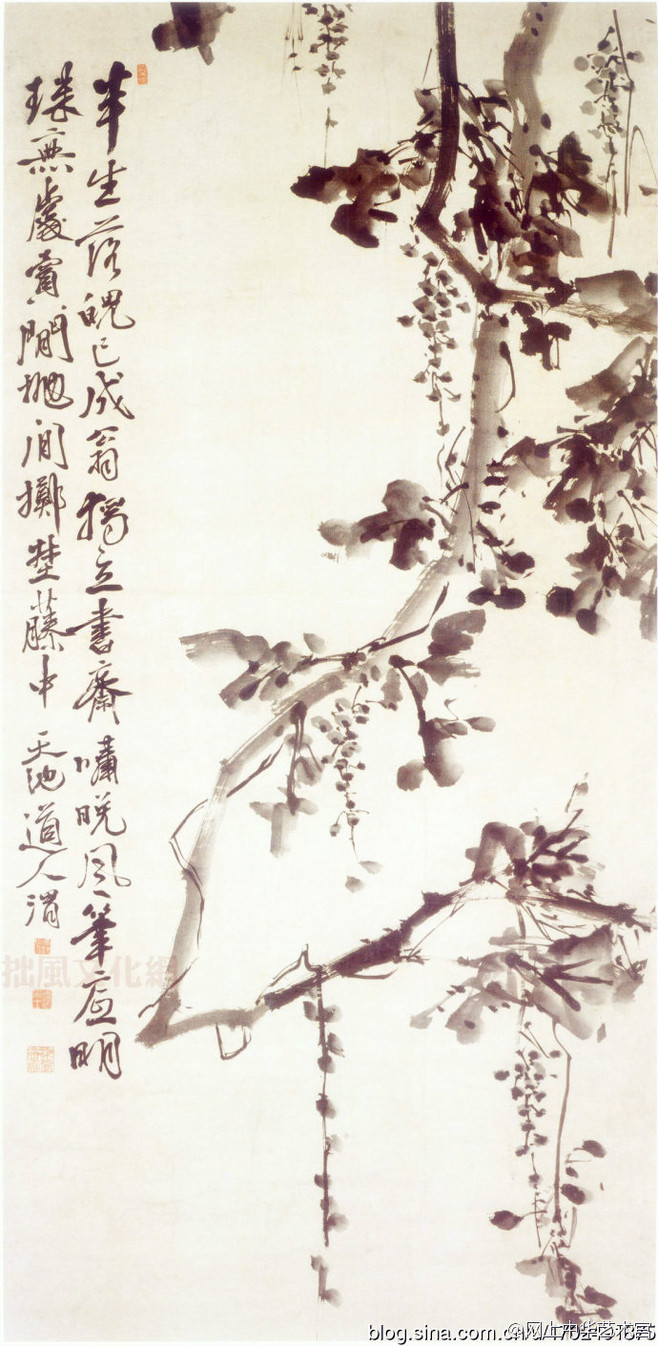 半生落魄已成翁獨立書齋嘯晚風筆底明
珠無處賣閒拋閒擲野藤中 天池道人渭
拙風文化網
blog.sina.com.cn